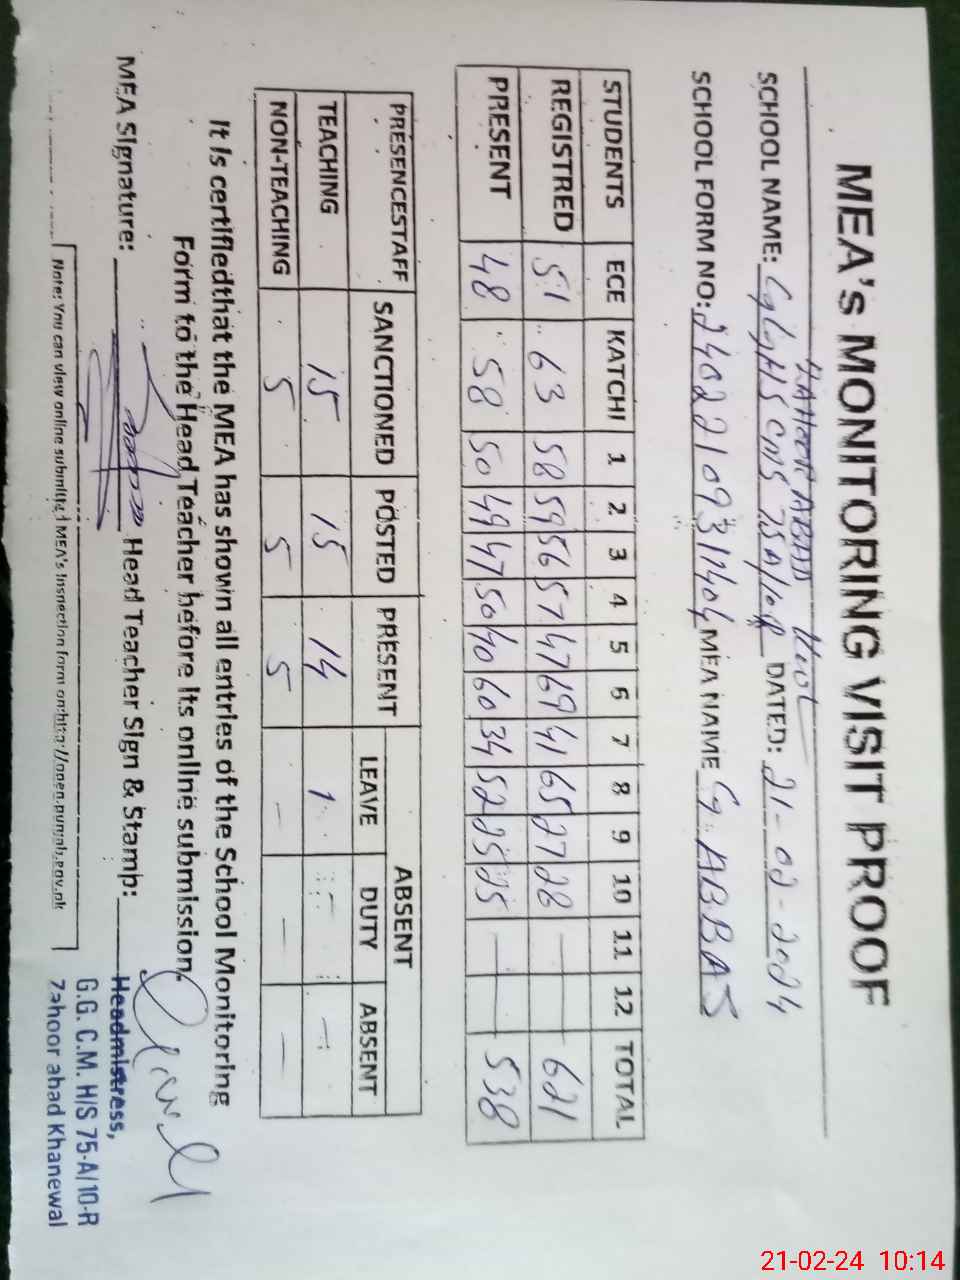 MEA's MONITORING VISIT PROOF
ZAHOOR ABAD
SCHOOL NAME: GGHS CMS 75A/10R DATED: 21-02-2024
SCHOOL FORM NO: 2402210931404 MEA NAME G. ABBAS
STUDENTS ECE KATCHI 1 2 3 4 5 6 7 8 9 10 11 12 TOTAL
REGISTRED 51 63 58 59 56 57 47 69 41 65 27 28 — — 621
PRESENT 48 58 50 49 47 50 40 60 34 52 25 25 — — 538
PRESENCESTAFF SANCTIONED POSTED PRESENT ABSENT
LEAVE DUTY ABSENT
TEACHING 15 15 14 1 - -
NON-TEACHING 5 5 5 - - -
It is certifiedthat the MEA has shown all entries of the School Monitoring
Form to the Head Teacher before its online submission.
MEA Signature: Head Teacher Sign & Stamp:
Headmistress,
G.G. C.M. H/S 75-A/10-R
Zahoor abad Khanewal
Note: You can view online submitted MEA's Inspection form on:http://open.punjab.gov.pk
21-02-24 10:14